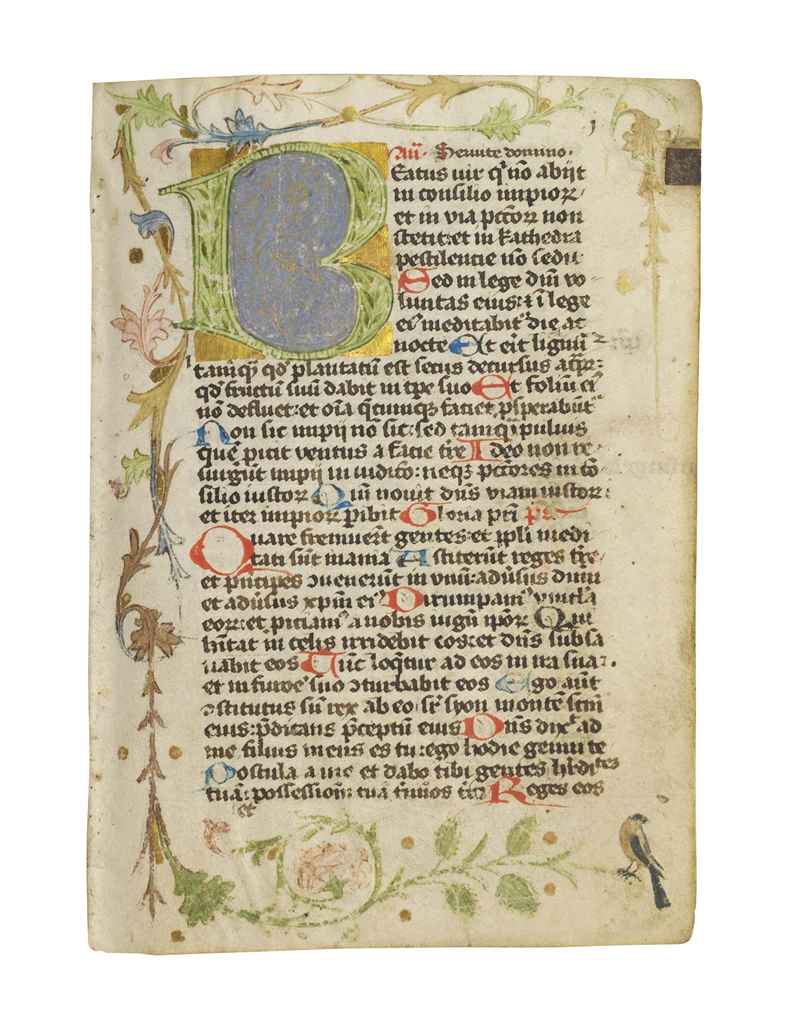 Aña. Seruite domino.
Beatus uir q̓ nō abijt
in consilio impioꝝ
et in via pctōꝝ non
stetit: et in kathedra
pestilencie nō sedit
Sed in lege dn̄i vo
luntas eius: ⁊ ī lege
ei᷒ meditabit᷑ die ac
nocte Et erit lignū
tamqꝫ qd̓ plantatū est secus decursus aq̄ꝝ:
qd̓ fructū suū dabit in tpe suo Et foliū ei᷒
nō defluet: et oīa q̄cumqꝫ faciet ꝓsperabūt᷑
Non sic impij nō sic: sed tamq̄ puluis
que ꝓicit ventus a facie tr̄e Ideo non re
surgūt impij in iudicō: neqꝫ pctōres in cō
silio iustoꝝ Qm̄ nouit dn̄s viam iustoꝝ:
et iter impioꝝ ꝑibit Gloria pr̄i
Quare fremuert̄ gentes: et ppl̓i medi
tati sūt inania Astiterūt reges tr̄e
et pn̄cipes ꝯuenerūt in vnū: aduⁱsus dn̄m
et aduⁱsus xpm̄ ei᷒ Dirumpam᷒ vincl̓a
eoꝝ: et ꝓiciam᷒ a nobis iugū ip̄oꝝ Qui
hītat in celis irridebit eos: et dn̄s subsa
nabit eos Tūc loq̄tur ad eos in ira sua:
et in furore suo ꝯturbabit eos Ego aūt
ꝯstitutus sū rex ab eo sr̄ syon montē scm̄
eius: p̄dicans p̄ceptū eius Dn̄s dix̓ ad
me filius meus es tu: ego hodie genui te
Postula a me et dabo tibi gentes h̓edi tes
tuā: possessionē tuā t̓minos tr̄e Reges eos
et